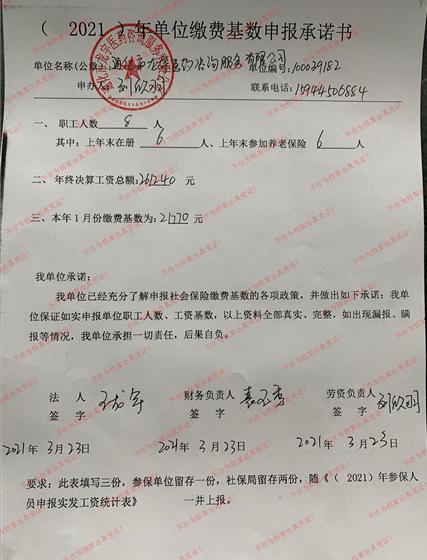 （ 2021 ）年单位缴费基数申报承诺书
单位名称(公章)：通化市龙宇医药咨询服务有限公司 单位编号：10039182
申办人：刘欣羽 联系电话：15944506884
一、 职工人数 8 人
其中：上年末在册 6 人、上年末参加养老保险 6 人；
二、年终决算工资总额：261240 元
三、本年1月份缴费基数为：21770 元
我单位承诺：
我单位已经充分了解申报社会保险缴费基数的各项政策，并做出如下承诺：我单
位保证如实申报单位职工人数、工资基数，以上资料全部真实、完整，如出现漏报、瞒
报等情况，我单位承担一切责任，后果自负。
法 人 财务负责人 劳资负责人 刘欣羽
签 字 签 字 签 字
2021年 3月23日 2021年 3月23日 2021年 3月23日
要求：此表填写三份，参保单位留存一份，社保局留存两份，随《（ 2021）年参保人
员申报实发工资统计表》 一并上报。
不作为档案出具凭证！